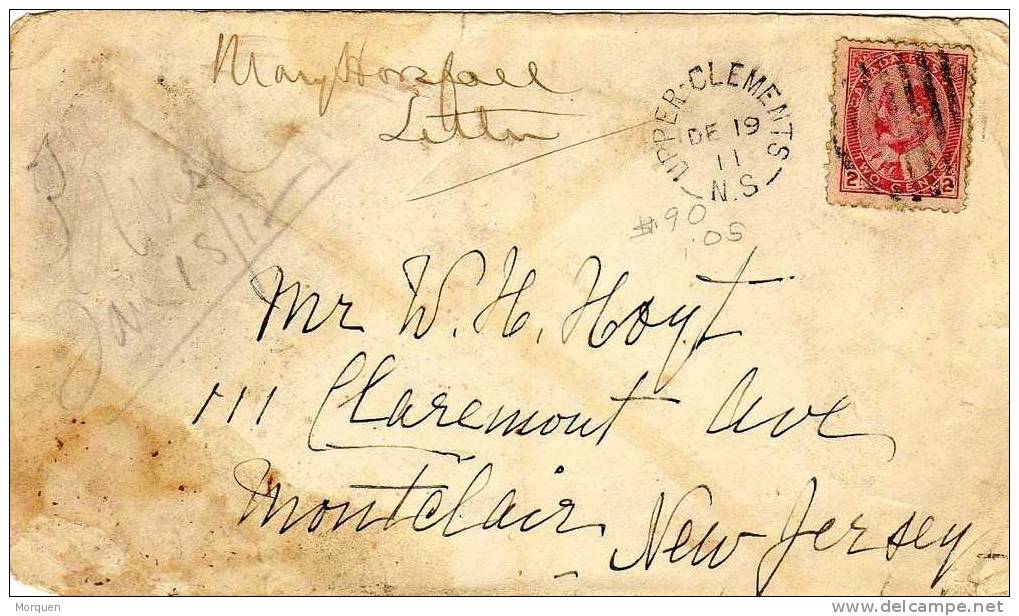 Mary Horsfall
Letter
UPPER-CLEMENTS
DE 19
11
N.S
CANADA POSTAGE
2 TWO CENTS 2
90
.05
Jan 15/12
Mr W. H. Hoyt
111 Claremont Ave
Montclair
New Jersey
Morquen
www.delcampe.net